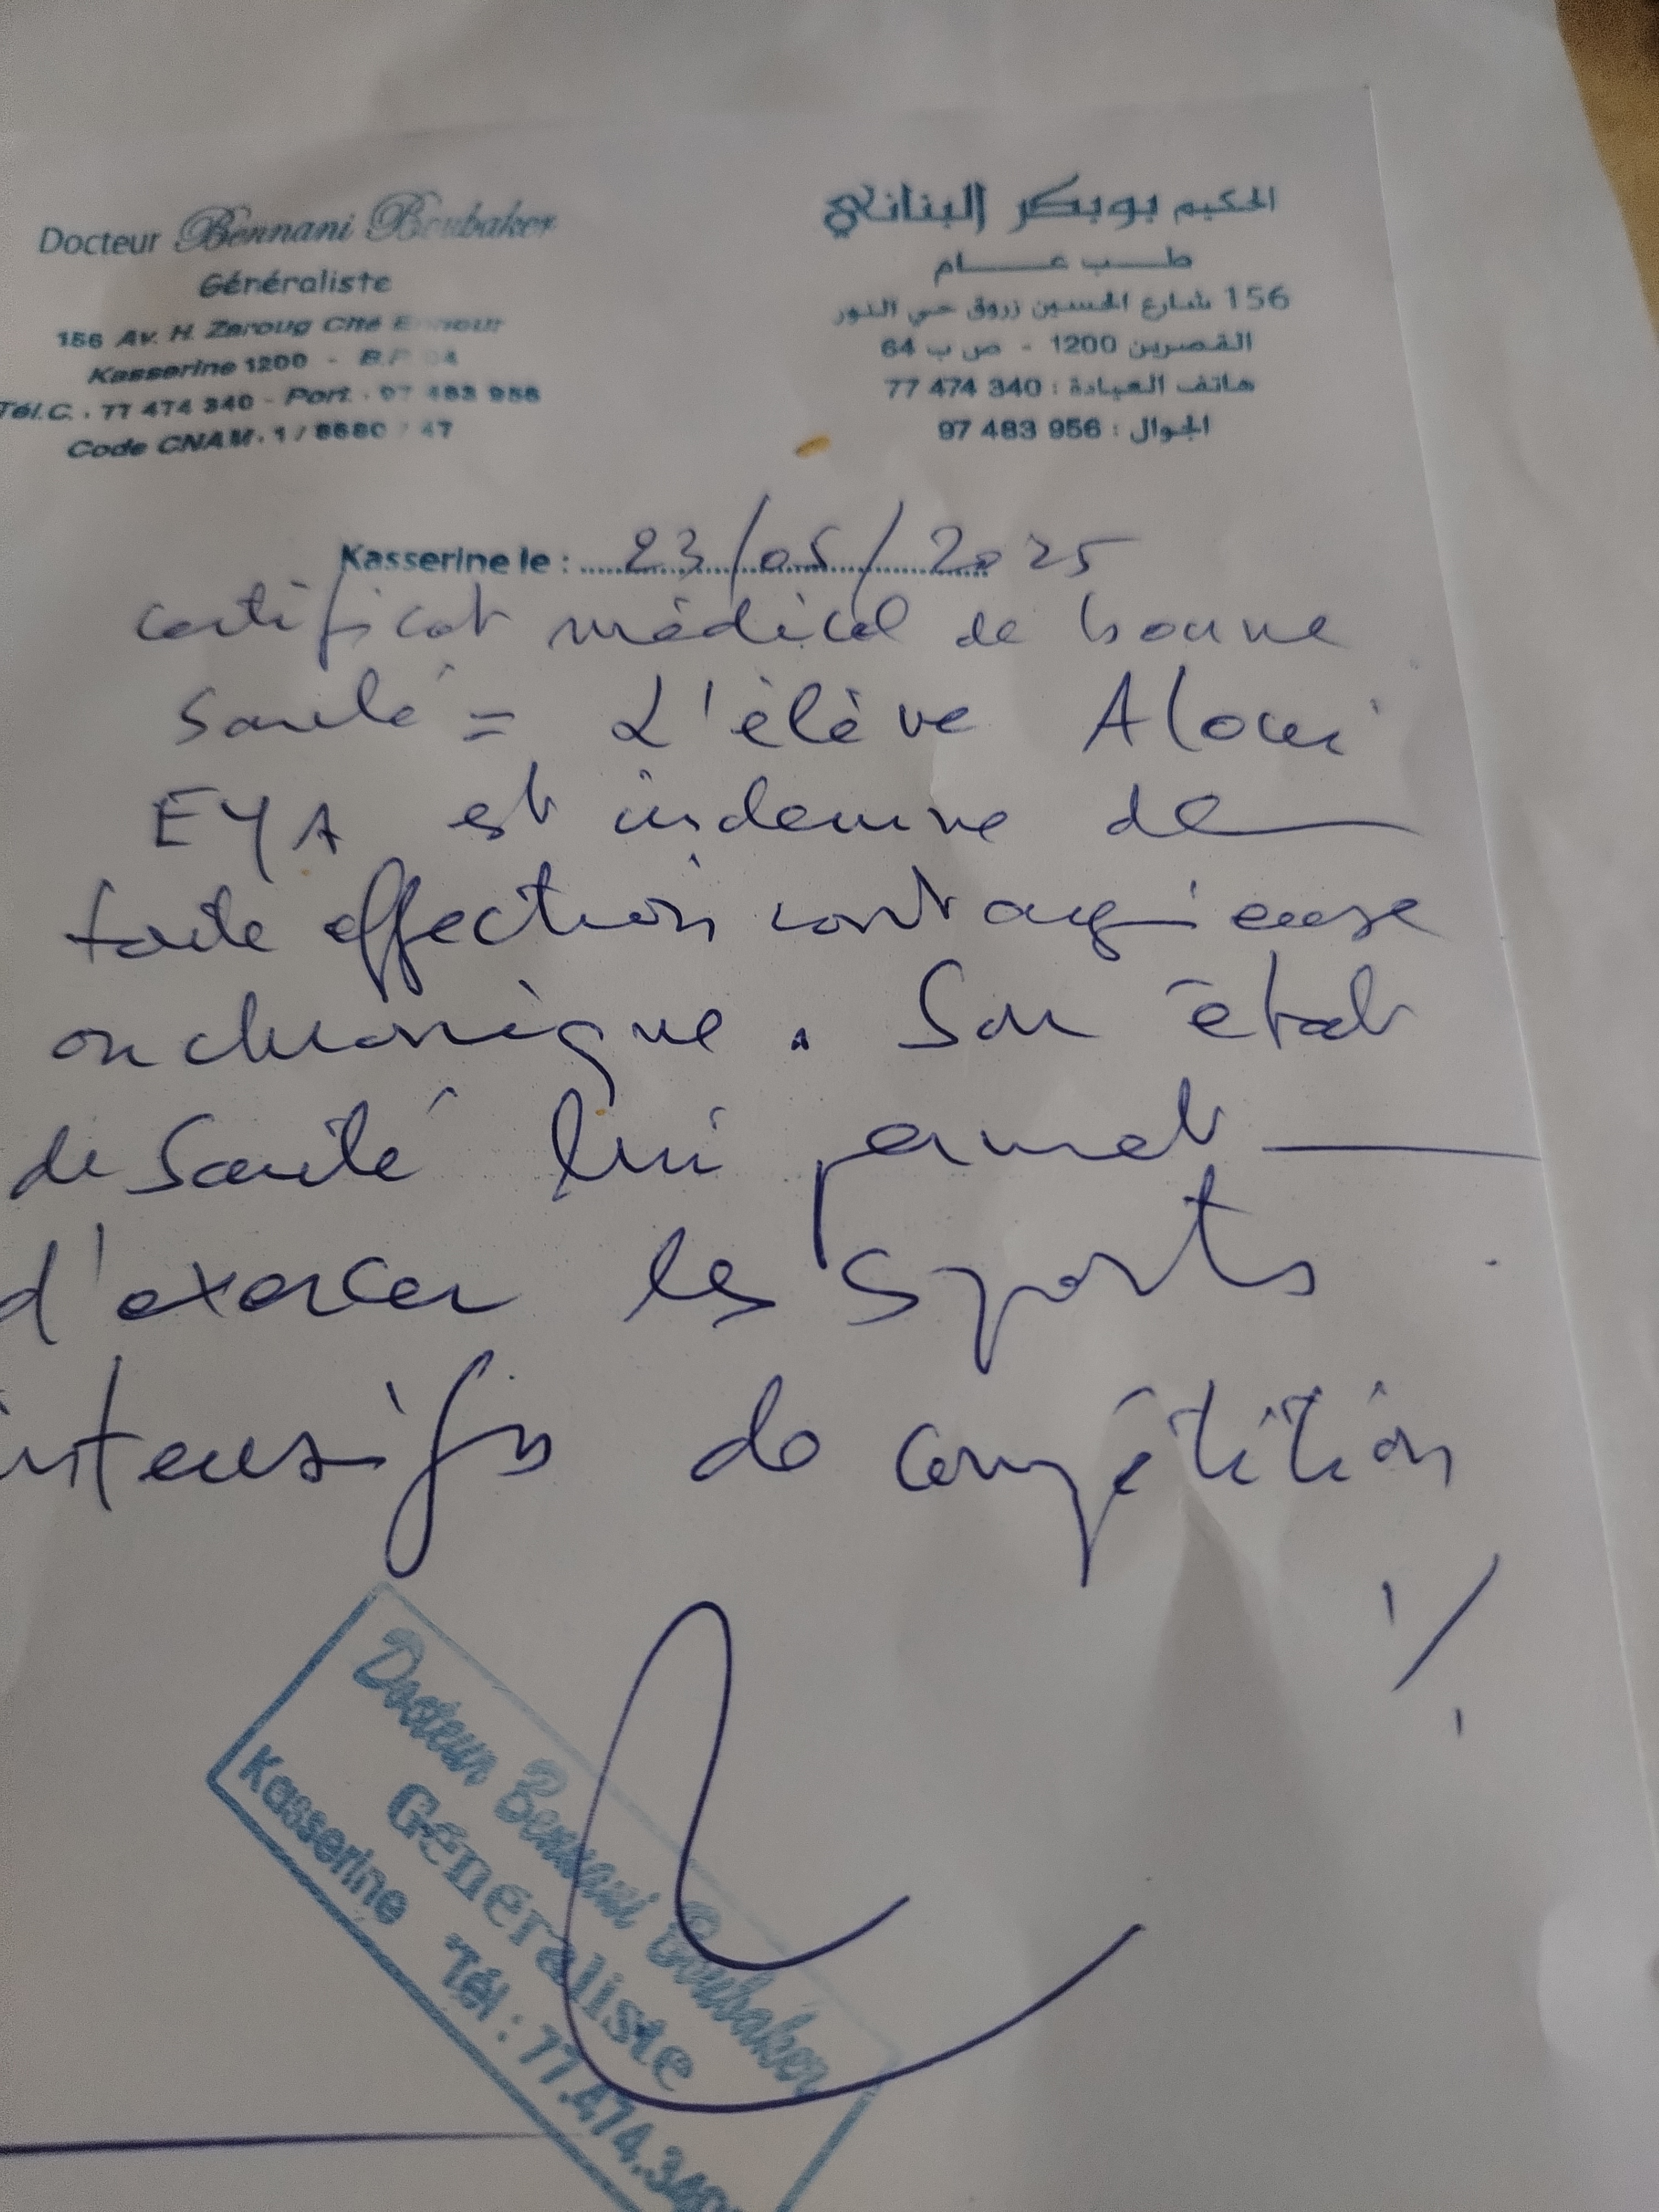 Docteur Bennani Boubaker
Généraliste
156 Av. H. Zeroug Cité Ennour
Kasserine 1200 - B.P. 64
Tél.C. : 77 474 340 - Port. : 97 483 956
Code CNAM : 1 / 8680 / 47
الحكيم بوبكر البناني
طب عام
156 شارع الحسين زروق حي النور
القصرين 1200 - ص ب 64
هاتف العيادة : 340 474 77
الجوال : 956 483 97
Kasserine le : 23/05/2025
certificat médical de bonne
santé = L'élève Aloui
EYA est indemne de
toute affection contagieuse
ou chronique. Son état
de santé lui permet
d'exercer les sports
intensifs de compétition
Docteur Bennani Boubaker
Généraliste
Kasserine Tél : 77.474.340